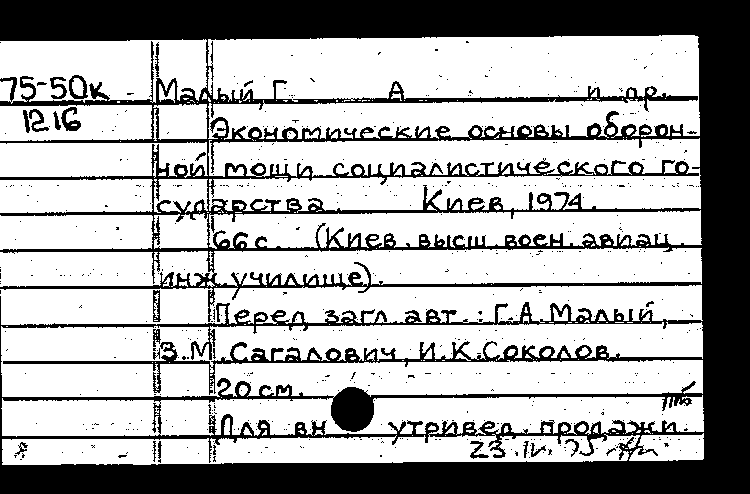 75-50к Малый, Г. А и пр.
1216
Экономические основы оборон-
ной мощи социалистического го-
сударства. Киев, 1974.
66 с. (Киев. высш. воен. авиац.
инж. училище).
Перед загл. авт.: Г.А. Малый,
З.М. Сагалович, И.К. Соколов.
20 см.
Для внутривед. продажи.
23.IV.75